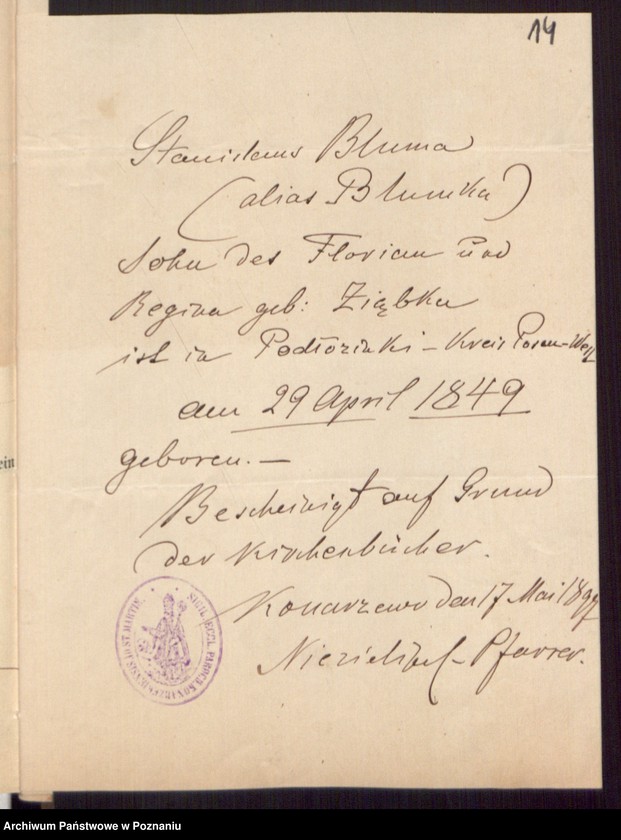 14
Stanislaus Bluma
(alias Blumka)
Sohn des Florian und
Regina geb: Ziąbka
ist in Podłozinki - Kreis Posen-West
am 29 April 1849
geboren. —
Bescheinigt auf Grund
der Kirchenbücher.
Konarzewo den 17 Mai 1897
Pfarrer.
SIGIL. ECCL. PAROCH. KONARZEWENSIS AD ST. MARTIN.
ein
Archiwum Państwowe w Poznaniu